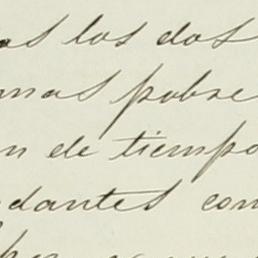 as los dos
mas pobre
n de tiempo
dantes con